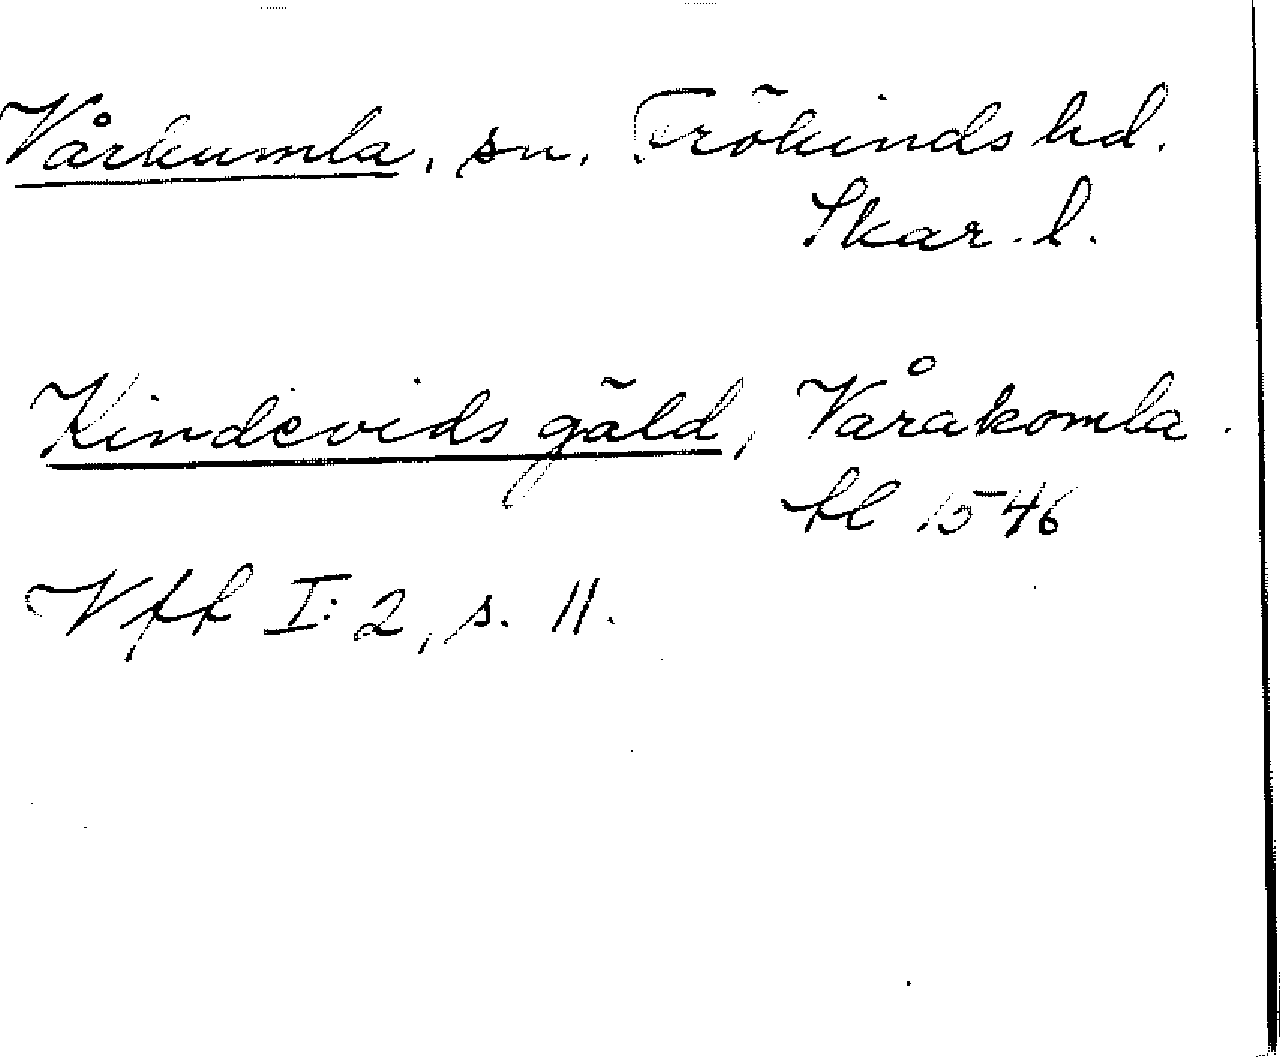 Vårkumla, sn. Frökinds hd.
Skar. l.
Kindevids gäld, Vårakomla.
fl 1546
Vff I:2, s. 11.